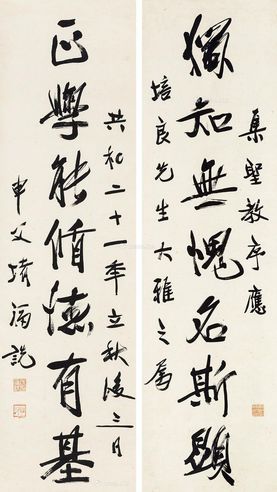 集聖教序應
獨知無愧名斯顯
培良先生大雅之屬
共和二十一年立秋後三日
正學能脩德有基
申父